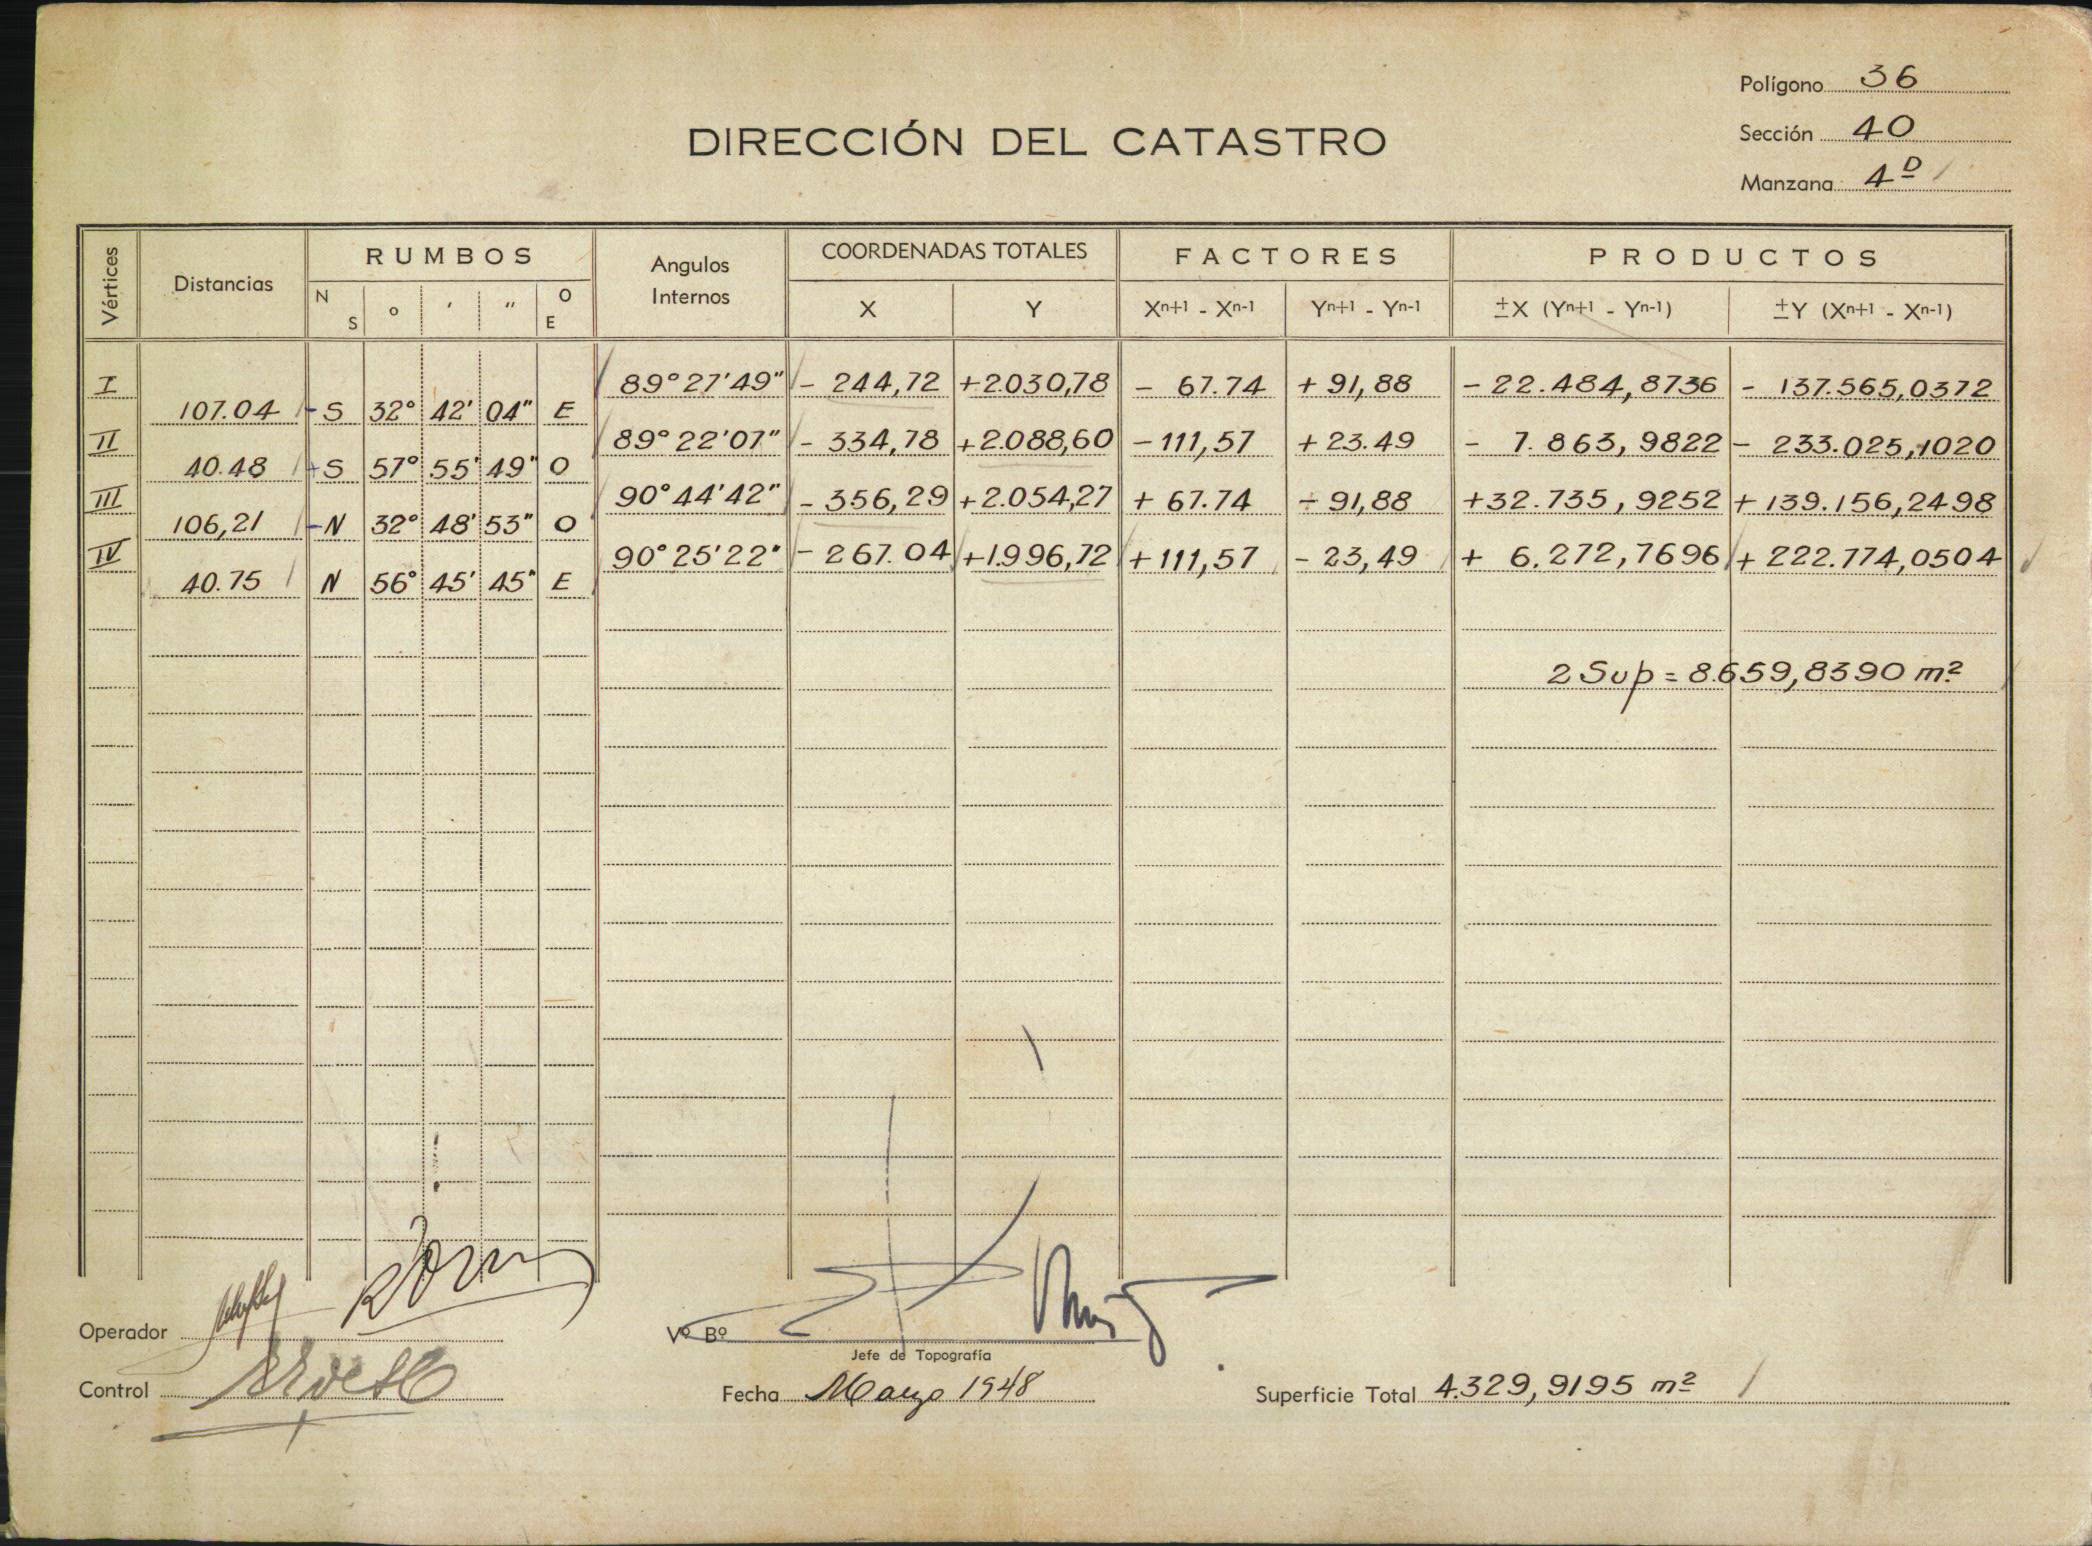 Polígono 36
DIRECCIÓN DEL CATASTRO
Sección 40
Manzana 4 D
Vértices Distancias RUMBOS Angulos Internos COORDENADAS TOTALES FACTORES PRODUCTOS
N S o ' " O E X Y Xn+1 - Xn-1 Yn+1 - Yn-1 ±X (Yn+1 - Yn-1) ±Y (Xn+1 - Xn-1)
I 89°27'49" - 244,72 +2.030,78 - 67.74 + 91,88 - 22.484,8736 - 137.565,0372
107.04 - S 32° 42' 04" E
II 89°22'07" - 334,78 +2.088,60 - 111,57 + 23.49 - 7.863,9822 - 233.025,1020
40.48 + S 57° 55' 49" O
III 90°44'42" - 356,29 +2.054,27 + 67.74 - 91,88 +32.735,9252 + 139.156,2498
106,21 - N 32° 48' 53" O
IV 90°25'22" - 267.04 +1.996,72 + 111,57 - 23,49 + 6.272,7696 + 222.774,0504
40.75 N 56° 45' 45" E
2 Sup = 8.659,8390 m²
Operador
Vº Bº
Jefe de Topografía
Control
Fecha Marzo 1948
Superficie Total 4.329,9195 m²